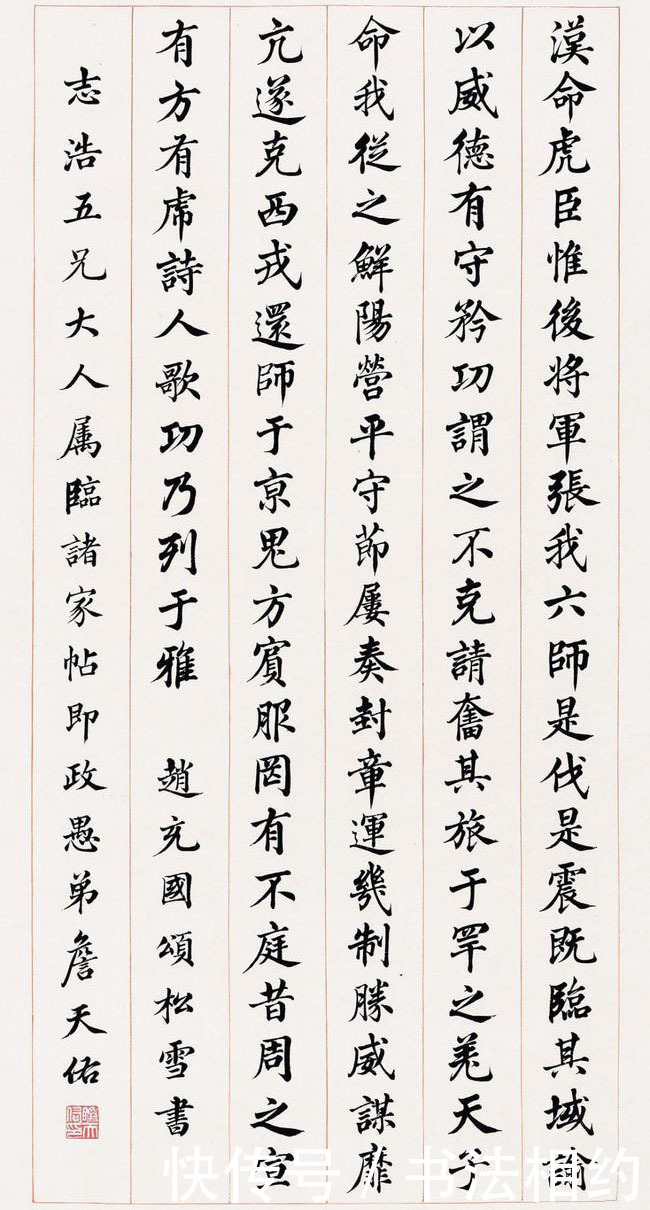 漢命虎臣惟後将軍張我六師是伐是震既臨其域諭
以威德有守矜功謂之不克請奮其旅于罕之羌天子
命我從之鮮陽營平守節屢奏封章運幾制勝威謀靡
亢遂克西戎還師于京鬼方賓服罔有不庭昔周之宣
有方有虎詩人歌功乃列于雅 趙充國頌松雪書
志浩五兄大人属臨諸家帖即政愚弟詹天佑
快传号/书法相约